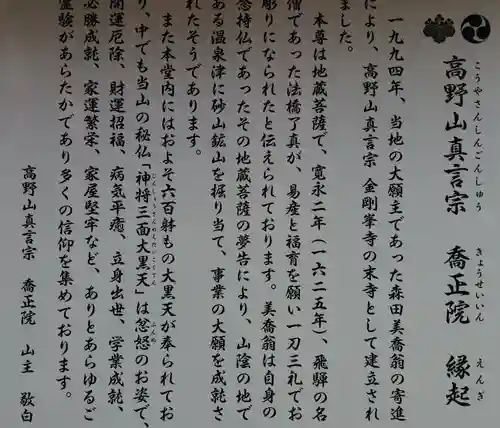 高野山真言宗　喬正院　縁起
こうやさんしんごんしゅう　きょうせいいん　えんぎ
一九九四年、当地の大願主であった森田美喬翁の寄進
により、高野山真言宗 金剛峯寺の末寺として建立され
ました。
本尊は地蔵菩薩で、寛永二年(一六二五年)、飛騨の名
僧であった法橋了真が、易産と福育を願い一刀三礼でお
彫りになられたと伝えられております。美喬翁は自身の
念持仏であったその地蔵菩薩の夢告により、山陰の地で
ある温泉津に砂山鉱山を掘り当て、事業の大願を成就さ
れたそうであります。
また本堂内にはおよそ六百躰もの大黒天が奉られてお
り、中でも当山の秘仏「神将三面大黒天」は忿怒のお姿で、
開運厄除、財運招福、病気平癒、立身出世、学業成就、
必勝成就、家運繁栄、家屋堅牢など、ありとあらゆるご
霊験があらたかであり多くの信仰を集めております。
高野山真言宗　喬正院　山主　敬白